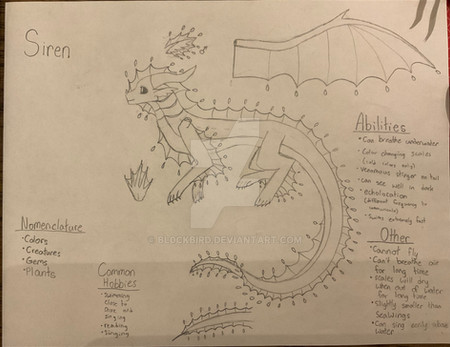 Siren
Abilities
• Can breathe underwater
• Color changing scales
(cold colors only)
• Venomous stinger on tail
• Can see well in dark
• echolocation
(different frequency to
communicate)
• Swims extremely fast
Other
• Cannot fly
• Can't breathe air
for long time
• scales will dry
when out of water
for long time
• Slightly smaller than
SeaWings
• Can sing easily
water
Nomenclature
• Colors
• Creatures
• Gems
• Plants
Common
Hobbies
• Swimming
close to
and
singing
• reading
• Singing
© BLOCKBIRD.DEVIANTART.COM